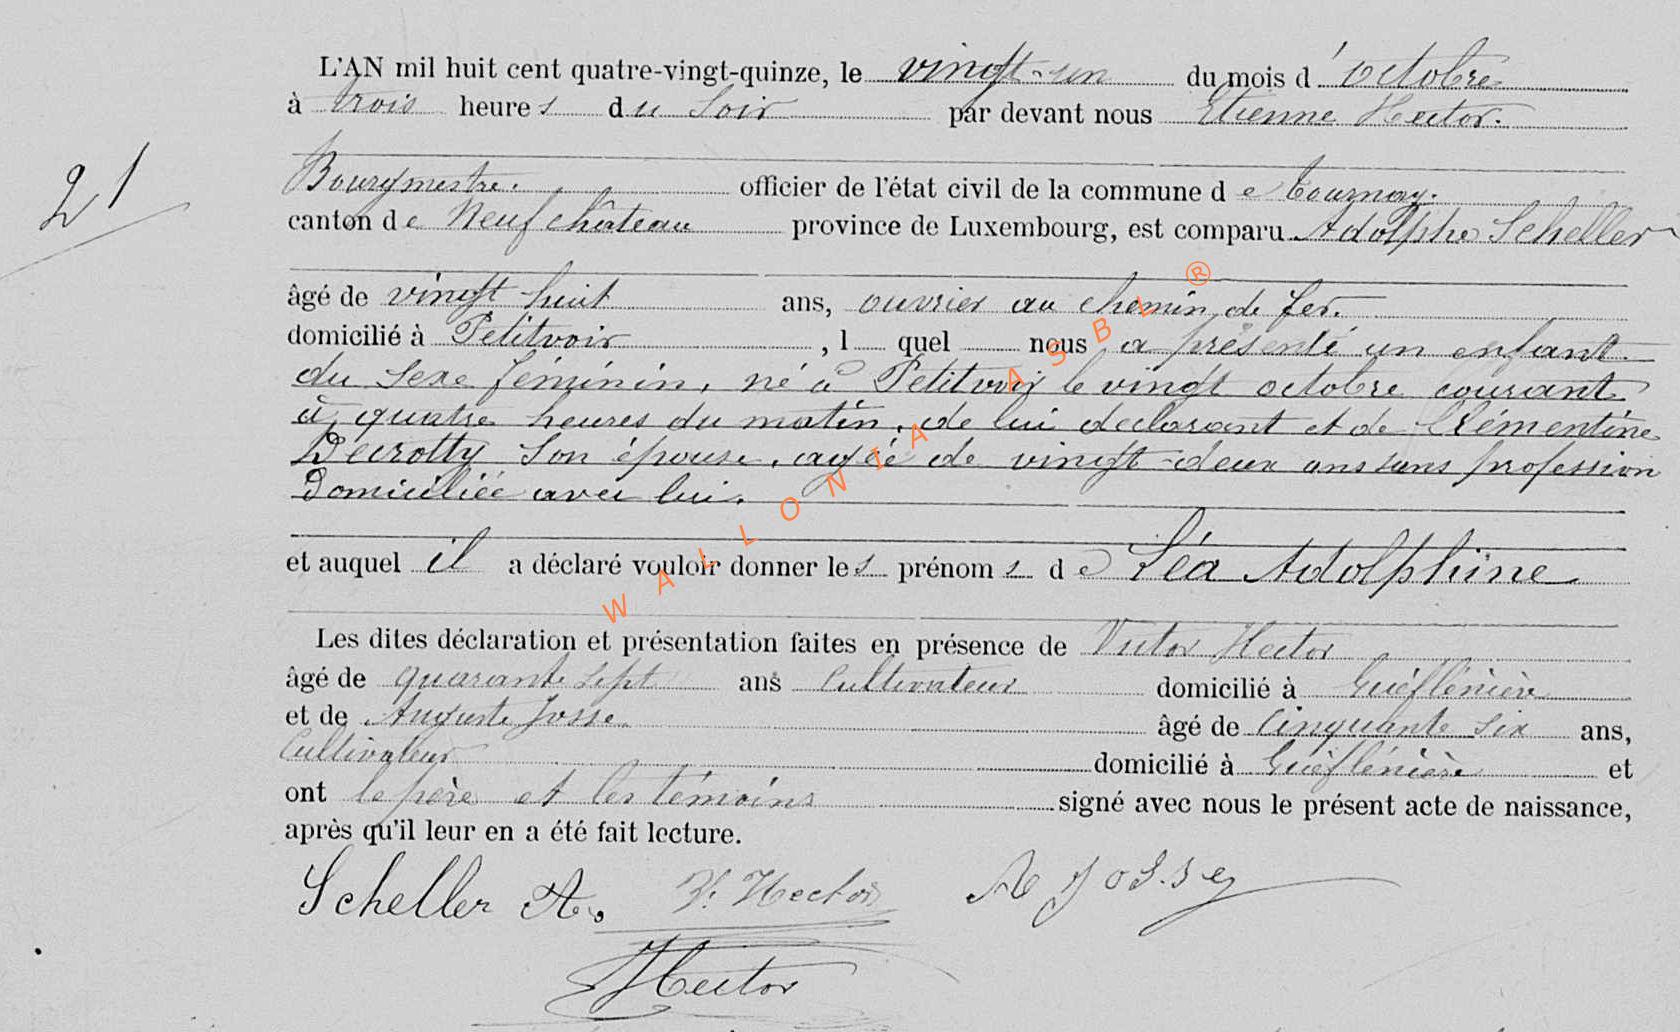 L'AN mil huit cent quatre-vingt-quinze, le vingt-un du mois d'octobre
à trois heures du soir par devant nous Etienne Hector.
Bourgmestre. officier de l'état civil de la commune de Tournay.
21
canton de Neufchâteau province de Luxembourg, est comparu Adolphe Scheller
âgé de vingt-huit ans, ouvrier au chemin de fer.
domicilié à Petitvoir, l quel nous a présenté un enfant
du sexe féminin, né à Petitvoir le vingt octobre courant
à quatre heures du matin, de lui declarant et de Clémentine
Decrotty son épouse, agée de vingt-deux ans sans profession
domiciliée avec lui.
et auquel il a déclaré vouloir donner les prénoms de Léa Adolphine
Les dites déclaration et présentation faites en présence de Victor Hector
âgé de quarante sept ans Cultivateur domicilié à
et de Auguste Josse âgé de Cinquante six ans,
Cultivateur domicilié à et
ont le père et les témoins signé avec nous le présent acte de naissance,
après qu'il leur en a été fait lecture.
Scheller A. V. Hector A Jossey
Hector
WALLONIA ASBL ®